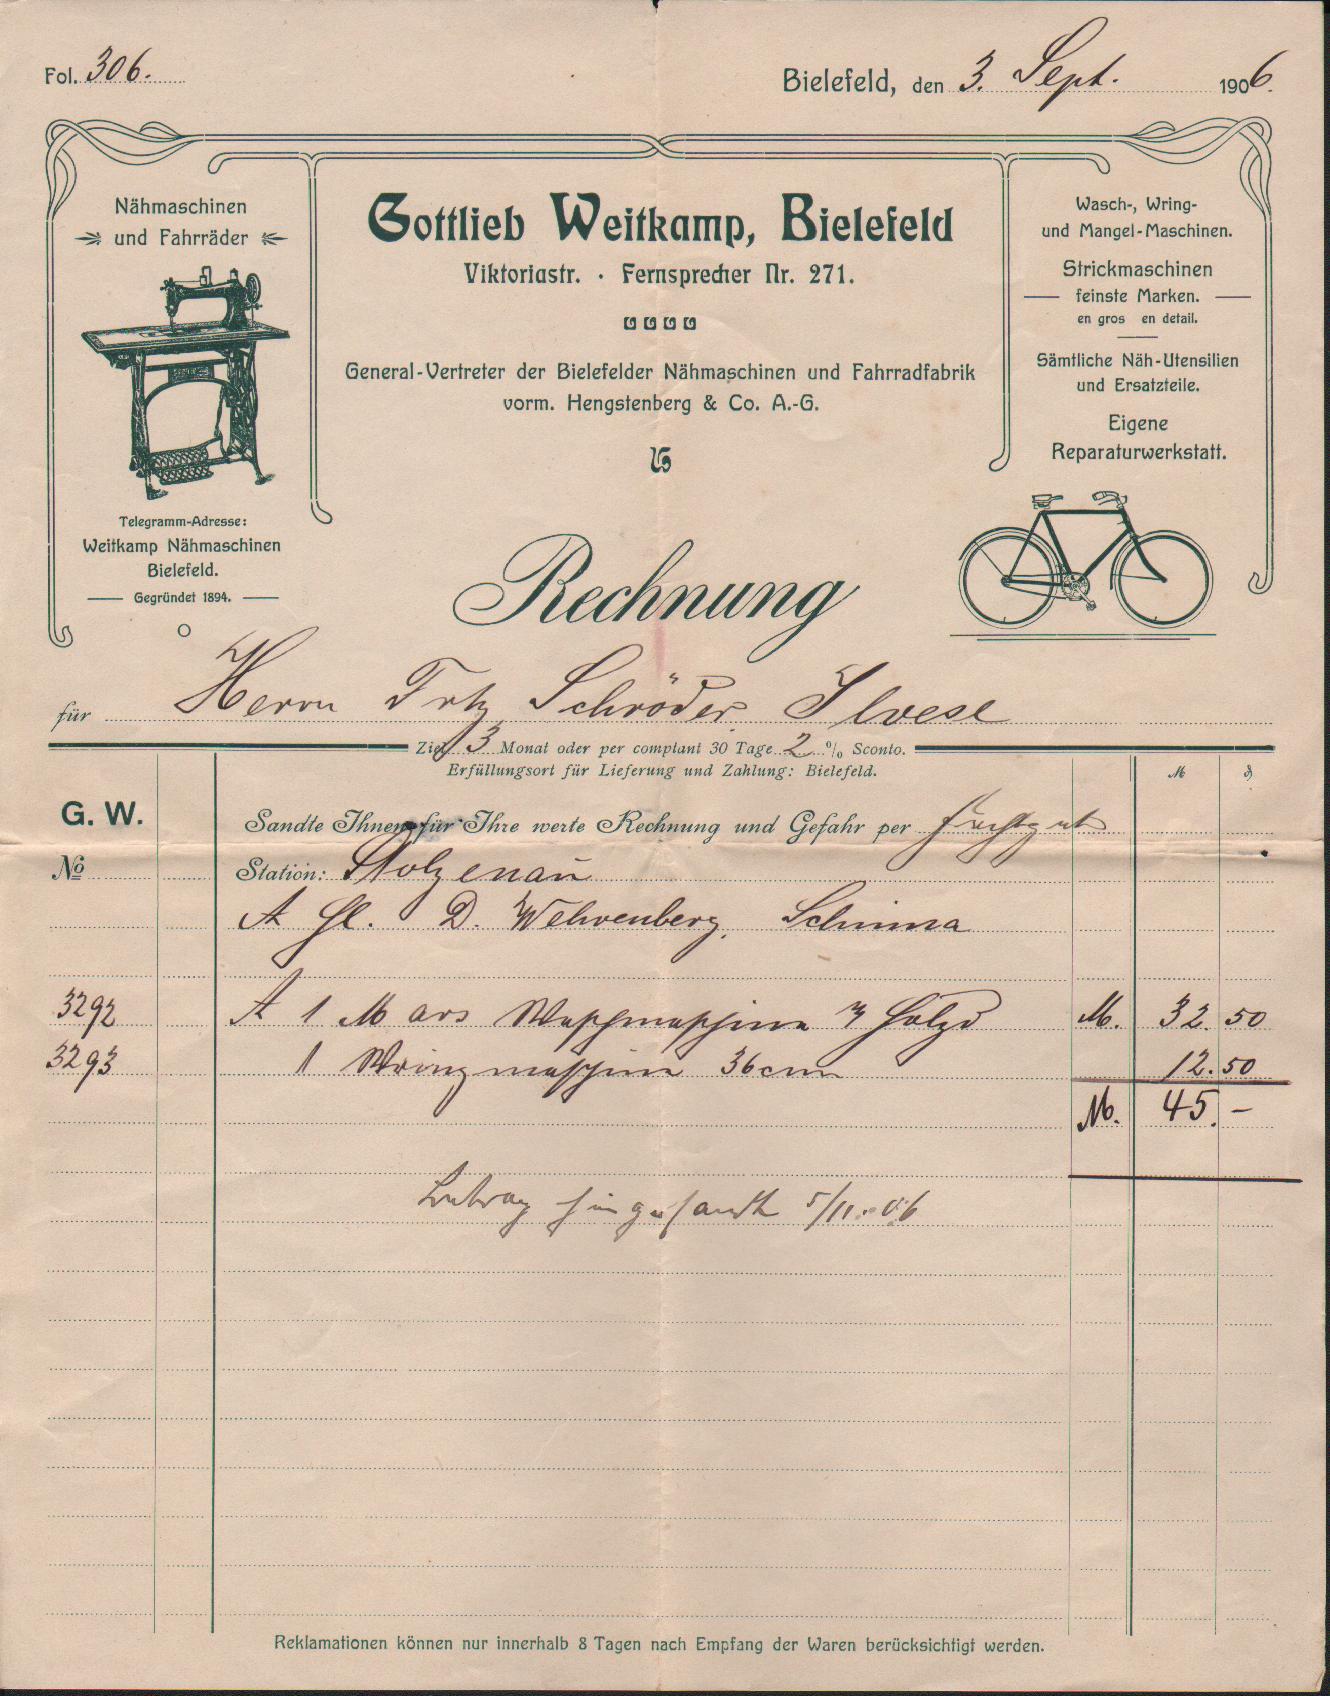 Fol. 306.
Bielefeld, den 3. Sept. 1906.
Nähmaschinen
und Fahrräder
Telegramm-Adresse:
Weitkamp Nähmaschinen
Bielefeld.
Gegründet 1894.
Gottlieb Weitkamp, Bielefeld
Viktoriastr. · Fernsprecher Nr. 271.
General-Vertreter der Bielefelder Nähmaschinen und Fahrradfabrik
vorm. Hengstenberg & Co. A.-G.
Wasch-, Wring-
und Mangel-Maschinen.
Strickmaschinen
feinste Marken.
en gros en detail.
Sämtliche Näh-Utensilien
und Ersatzteile.
Eigene
Reparaturwerkstatt.
Rechnung
für Herrn Frtz Schröder Ilvese
Ziel 3 Monat oder per comptant 30 Tage 2 % Sconto.
Erfüllungsort für Lieferung und Zahlung: Bielefeld.
M ₰
G. W.
Sandte Ihnen für Ihre werte Rechnung und Gefahr per Frachtgut
No
Station: Stolzenau
D. Wehrenberg, Schinna
3292 1 Mars Waschmaschine Holzd M. 32.50
3293 1 Wringmaschine 36cm 12.50
M. 45.-
Betrag eingesandt 5/11.06
Reklamationen können nur innerhalb 8 Tagen nach Empfang der Waren berücksichtigt werden.